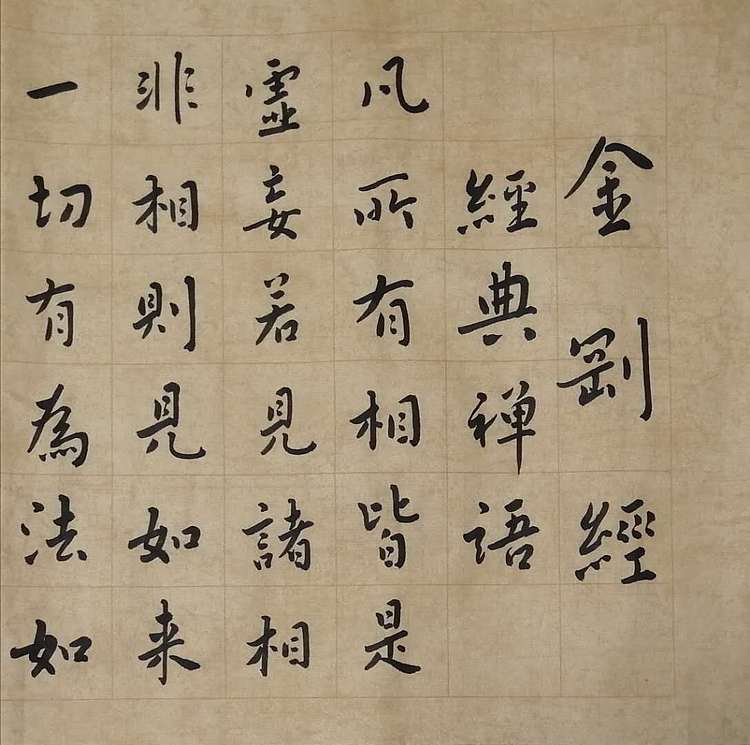 金剛經
經典禅語
凡所有相皆是
虛妄若見諸相
非相則見如来
一切有為法如